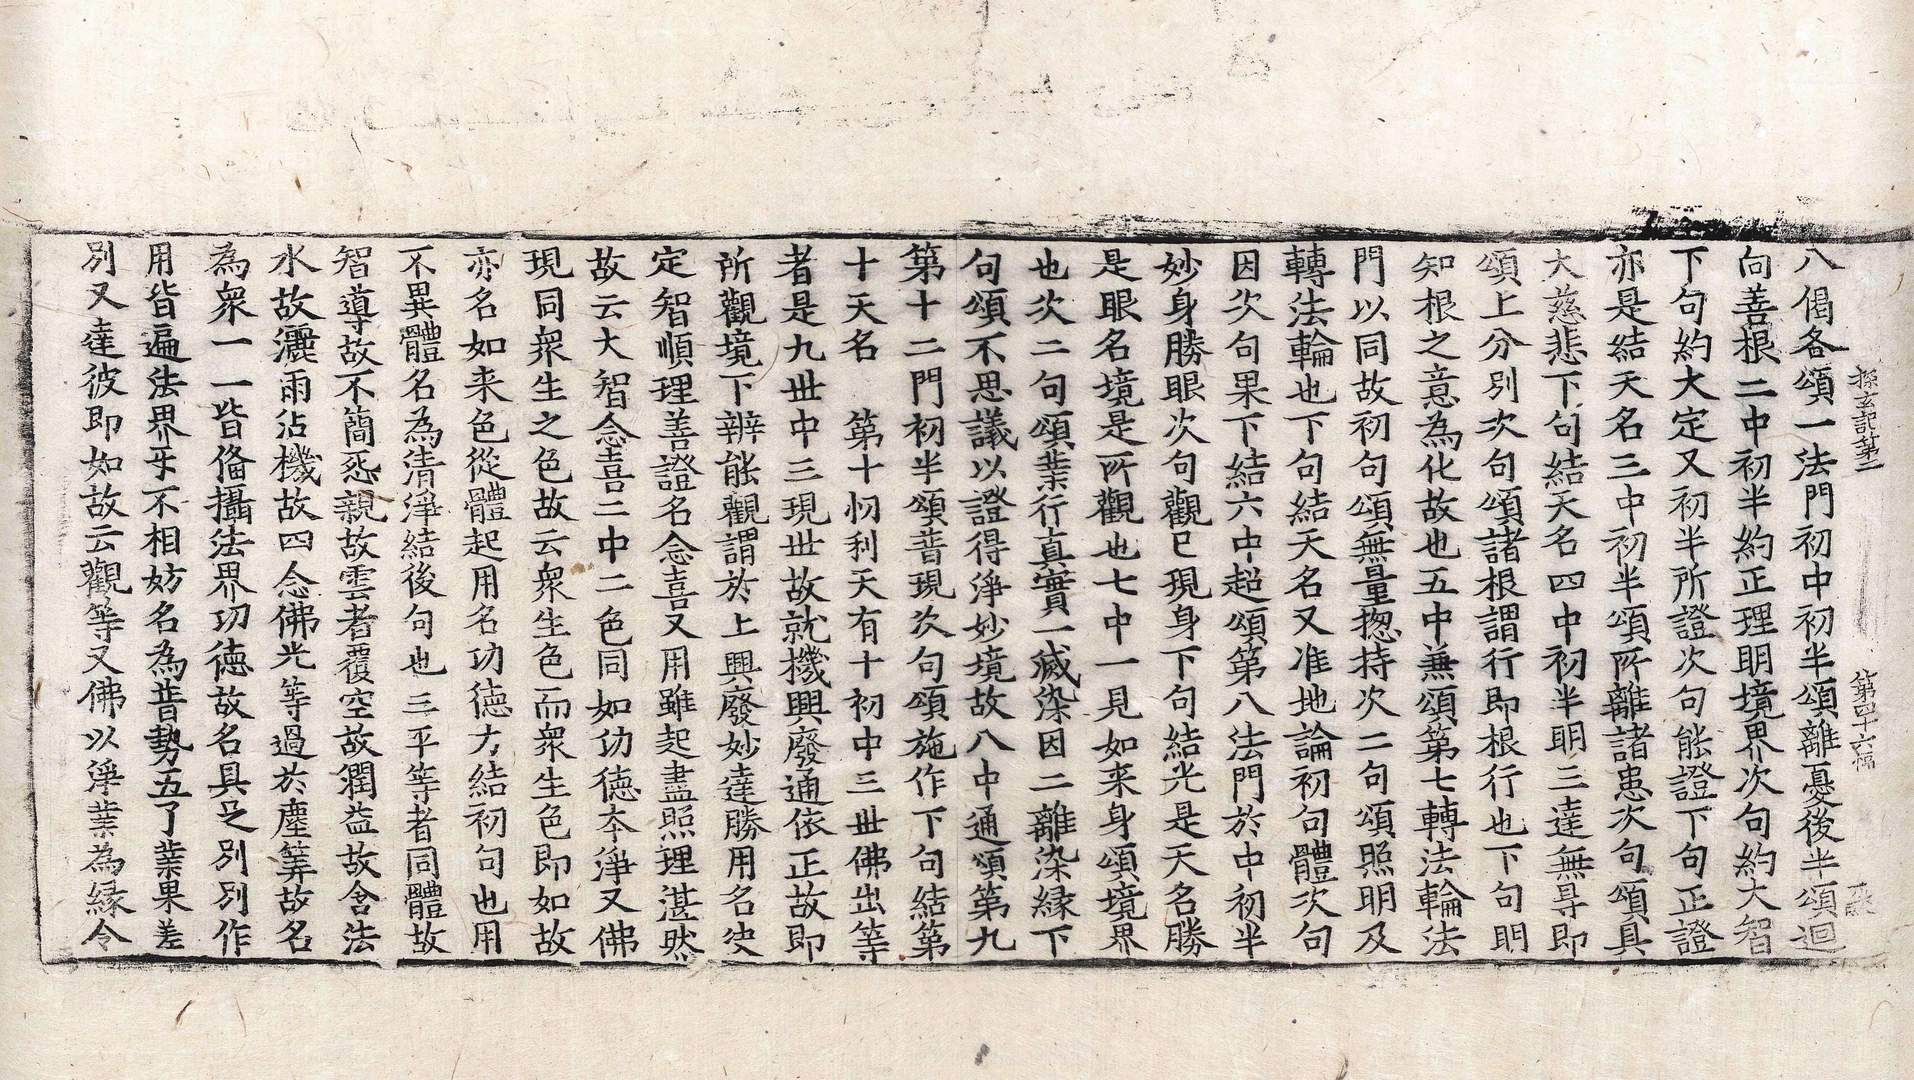 探玄記第二 第四十六幅
八偈各頌一法門初中初半頌離憂後半頌迴
向善根二中初半約正理明境界次句約大智
下句約大定又初半所證次句能證下句正證
亦是結天名三中初半頌所離諸患次句頌具
大慈悲下句結天名四中初半明三達無㝵即
頌上分別次句頌諸根謂行即根行也下句明
知根之意為化故也五中兼頌第七轉法輪法
門以同故初句頌無量揔持次二句頌照明及
轉法輪也下句結天名又准地論初句體次句
因次句果下結六中超頌第八法門於中初半
妙身勝眼次句觀已現身下句結光是天名勝
是眼名境是所觀也七中一見如来身頌境界
也次二句頌業行真實一滅染因二離染緣下
句頌不思議以證得淨妙境故八中通頌第九
第十二門初半頌普現次句頌施作下句結第
十天名　第十忉利天有十初中三丗佛出等
者是九丗中三現丗故就機興廢通依正故即
所觀境下辨能觀謂於上興廢妙達勝用名决
定智順理善證名念喜又用雖起盡照理湛然
故云大智念喜二中二色同如功德本淨又佛
現同衆生之色故云衆生色而衆生色即如故
亦名如来色從體起用名功德力結初句也用
不異體名為清淨結後句也三平等者同體故
智導故不簡惌親故雲者覆空故潤益故含法
水故灑雨沾機故四念佛光等過於塵筭故名
為衆一一皆俻攝法界功德故名具足別別作
用皆遍法界㸦不相妨名為普勢五了業果差
別又達彼即如故云觀等又佛以淨業為緣令